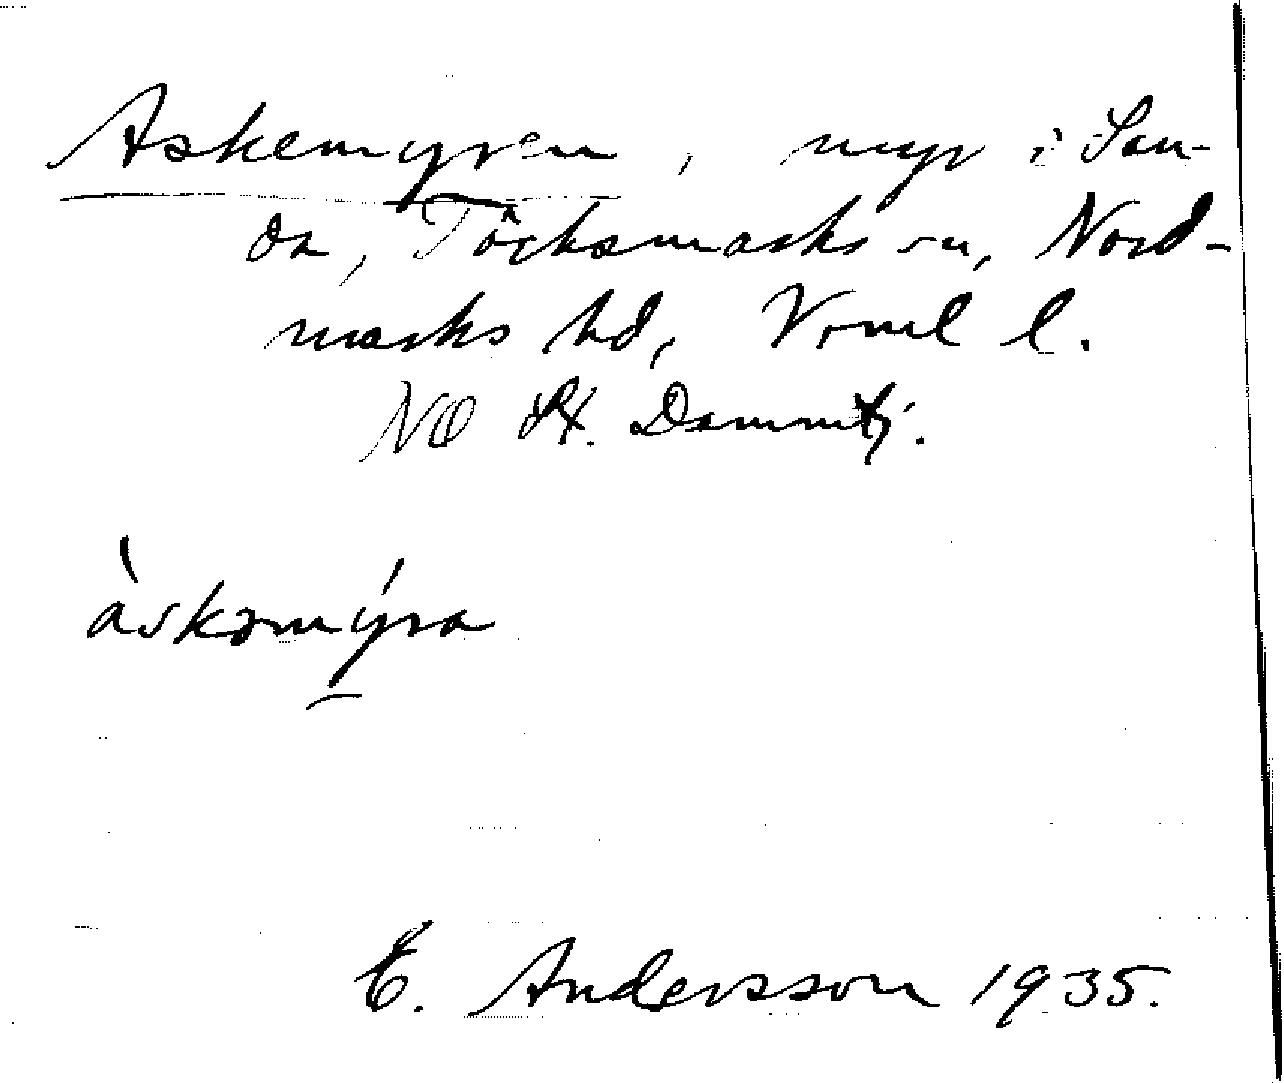 Askemyren, myr i San-
da, Töcksmarks sn, Nord-
marks hd, Vrml l.
NO St. Dammtj.
àskəmýra
E. Andersson 1935.